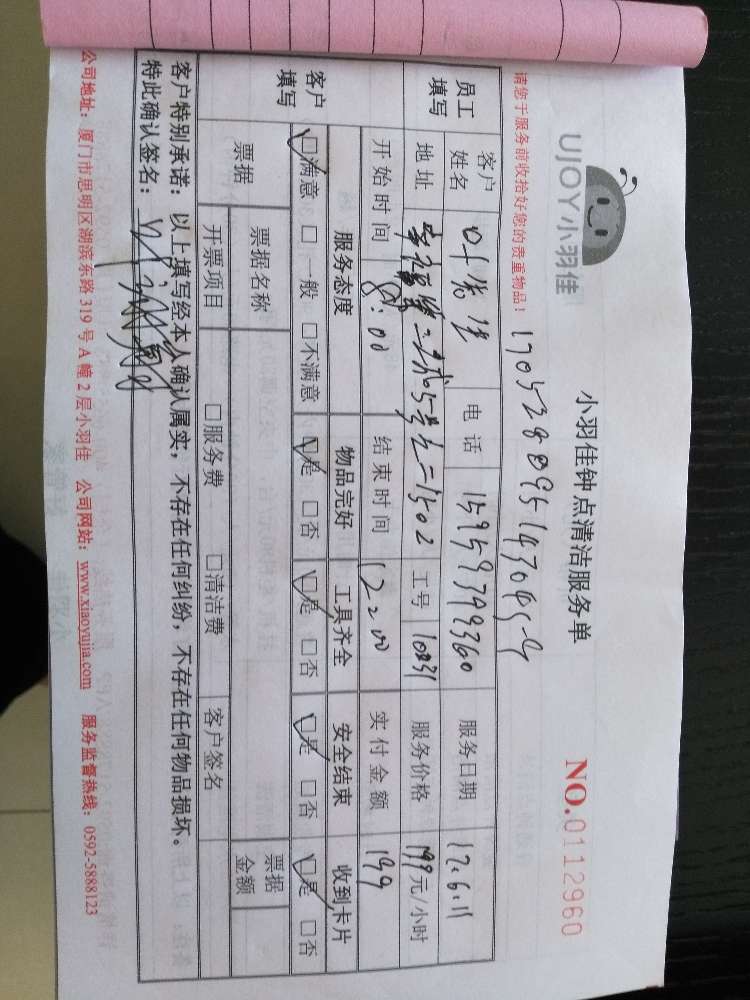 UJOY小羽佳
小羽佳钟点清洁服务单
NO.0112960
请您于服务前收拾好您的贵重物品！
员工填写
客户姓名
电话 15959799360
服务日期 17.6.11
地址
工号
服务价格 199元/小时
开始时间 8:00
结束时间 12:00
实付金额 199
客户填写
服务态度 物品完好 工具齐全 安全结束 收到卡片
☑满意 □一般 □不满意 ☑是 □否 ☑是 □否 ☑是 □否 ☑是 □否
票据
票据名称
票据金额
开票项目 □服务费 □清洁费 客户签名
客户特别承诺：以上填写经本人确认属实，不存在任何纠纷，不存在任何物品损坏。
特此确认签名：
公司地址：厦门市思明区湖滨东路319号A幢2层小羽佳 公司网站：www.xiaoyujia.com 服务监督热线：0592-5888123